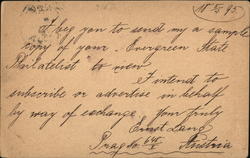 I beg you to send my a sample
copy of your Evergreen State
Philatelist to view
I intend to
subscribe or advertise in behalf
by way of exchange. Your truly
Ernst Lang
Prag
Austria